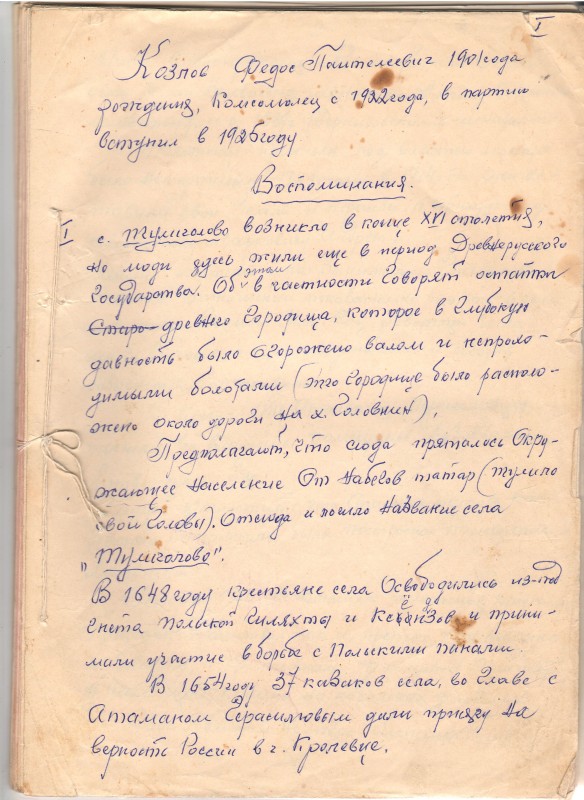 I
Козлов Федос Пантелеевич 1901 года
рождения, Комсомолец с 1922 года, в партию
вступил в 1925 году
Воспоминания.
I с. Тулиголово возникло в конце XVI столетия,
но люди здесь жили еще в период Древнерусского
Государства. Об этом в частности Говорят остатки
Старо- древнго Городища, которое в Глубокую
давность было Огорожено валом и непрохо-
димыми болотами (это Городище было располо-
жено около дороги На х. Головнин).
Предполагают, что сюда пряталось Окру-
жающее Население От Набегов татар (тулило
свои Головы). Отсюда и пошло Название села
„Тулиголово".
В 1648 году крестьяне села Освободились из-под
Гнета Польской Шляхты и и прини-
мали участие в борьбе с Польскими панами.
В 1654 году 37 казаков села, во Главе с
Атаманом Герасимовым дали присягу На
верность России в г. Кролевце.